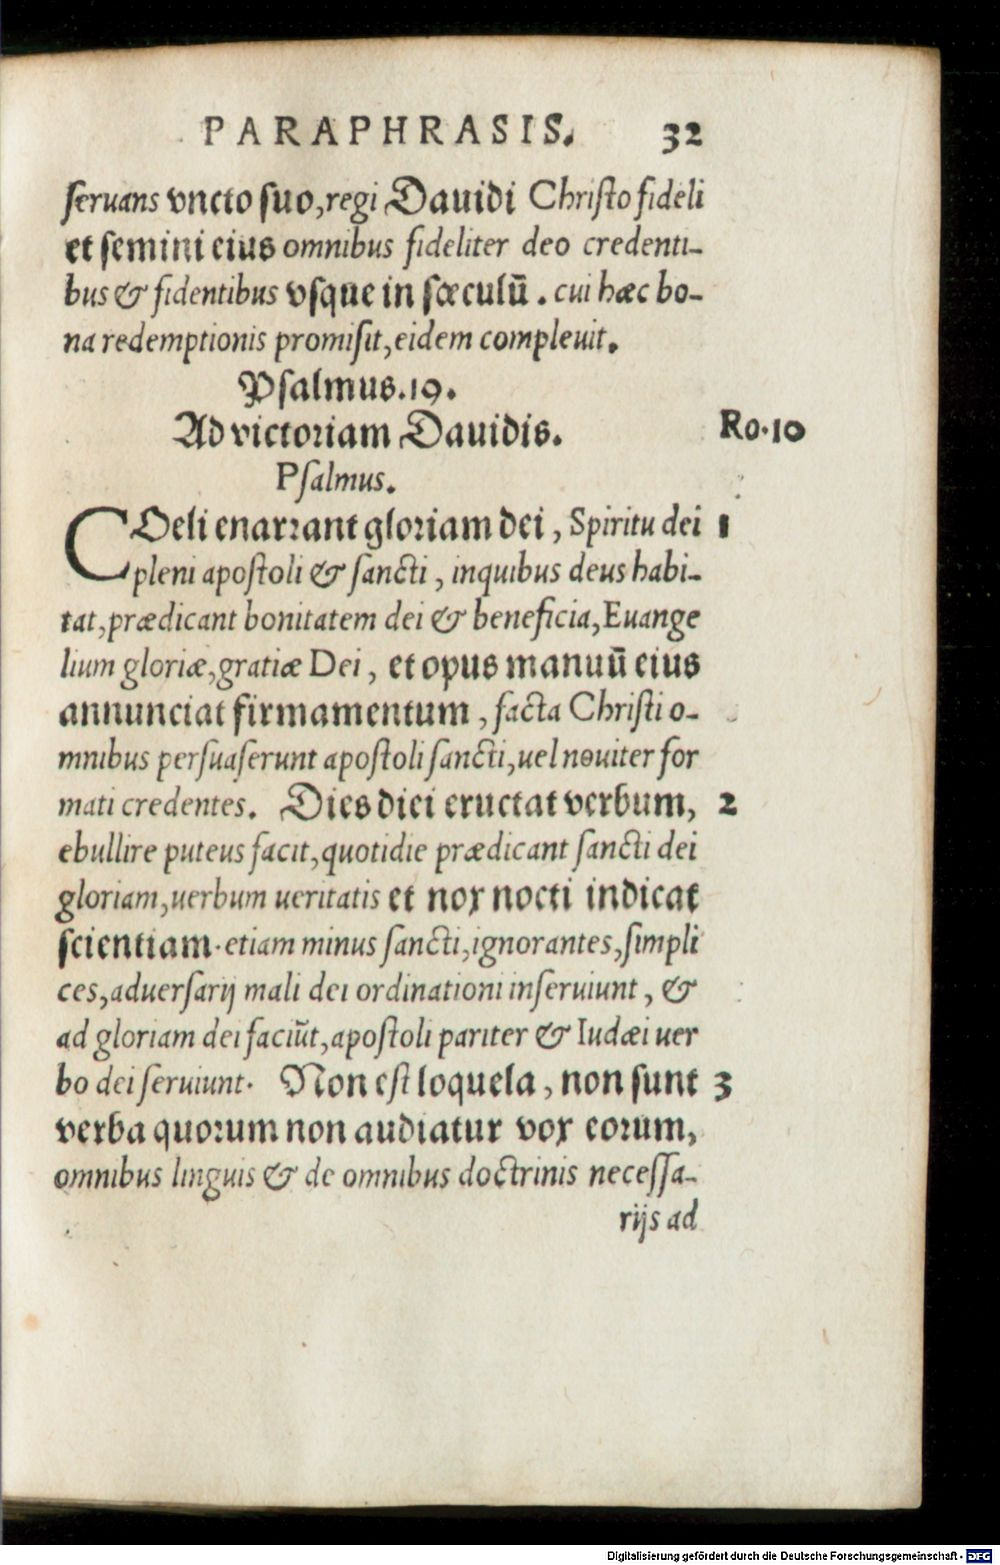 PARAPHRASIS. 32
seruans vncto suo, regi Dauidi Christo fideli
et semini eius omnibus fideliter deo credenti-
bus & fidentibus vsque in sœculū. cui hæc bo-
na redemptionis promisit, eidem compleuit.
Psalmus. 19.
Ad victoriam Dauidis. Ro. 10
Psalmus.
COeli enarrant gloriam dei, Spiritu dei 1
pleni apostoli & sancti, inquibus deus habi-
tat, prædicant bonitatem dei & beneficia, Euange
lium gloriæ, gratiæ Dei, et opus manuū eius
annunciat firmamentum, facta Christi o-
mnibus persuaserunt apostoli sancti, uel nouiter for
mati credentes. Dies diei eructat verbum, 2
ebullire puteus facit, quotidie prædicant sancti dei
gloriam, uerbum ueritatis et nox nocti indicat
scientiam. etiam minus sancti, ignorantes, simpli
ces, aduersarij mali dei ordinationi inseruiunt, &
ad gloriam dei faciūt, apostoli pariter & Iudæi uer
bo dei seruiunt. Non est loquela, non sunt 3
verba quorum non audiatur vox eorum,
omnibus linguis & de omnibus doctrinis necessa-
rijs ad
Digitalisierung gefördert durch die Deutsche Forschungsgemeinschaft - DFG